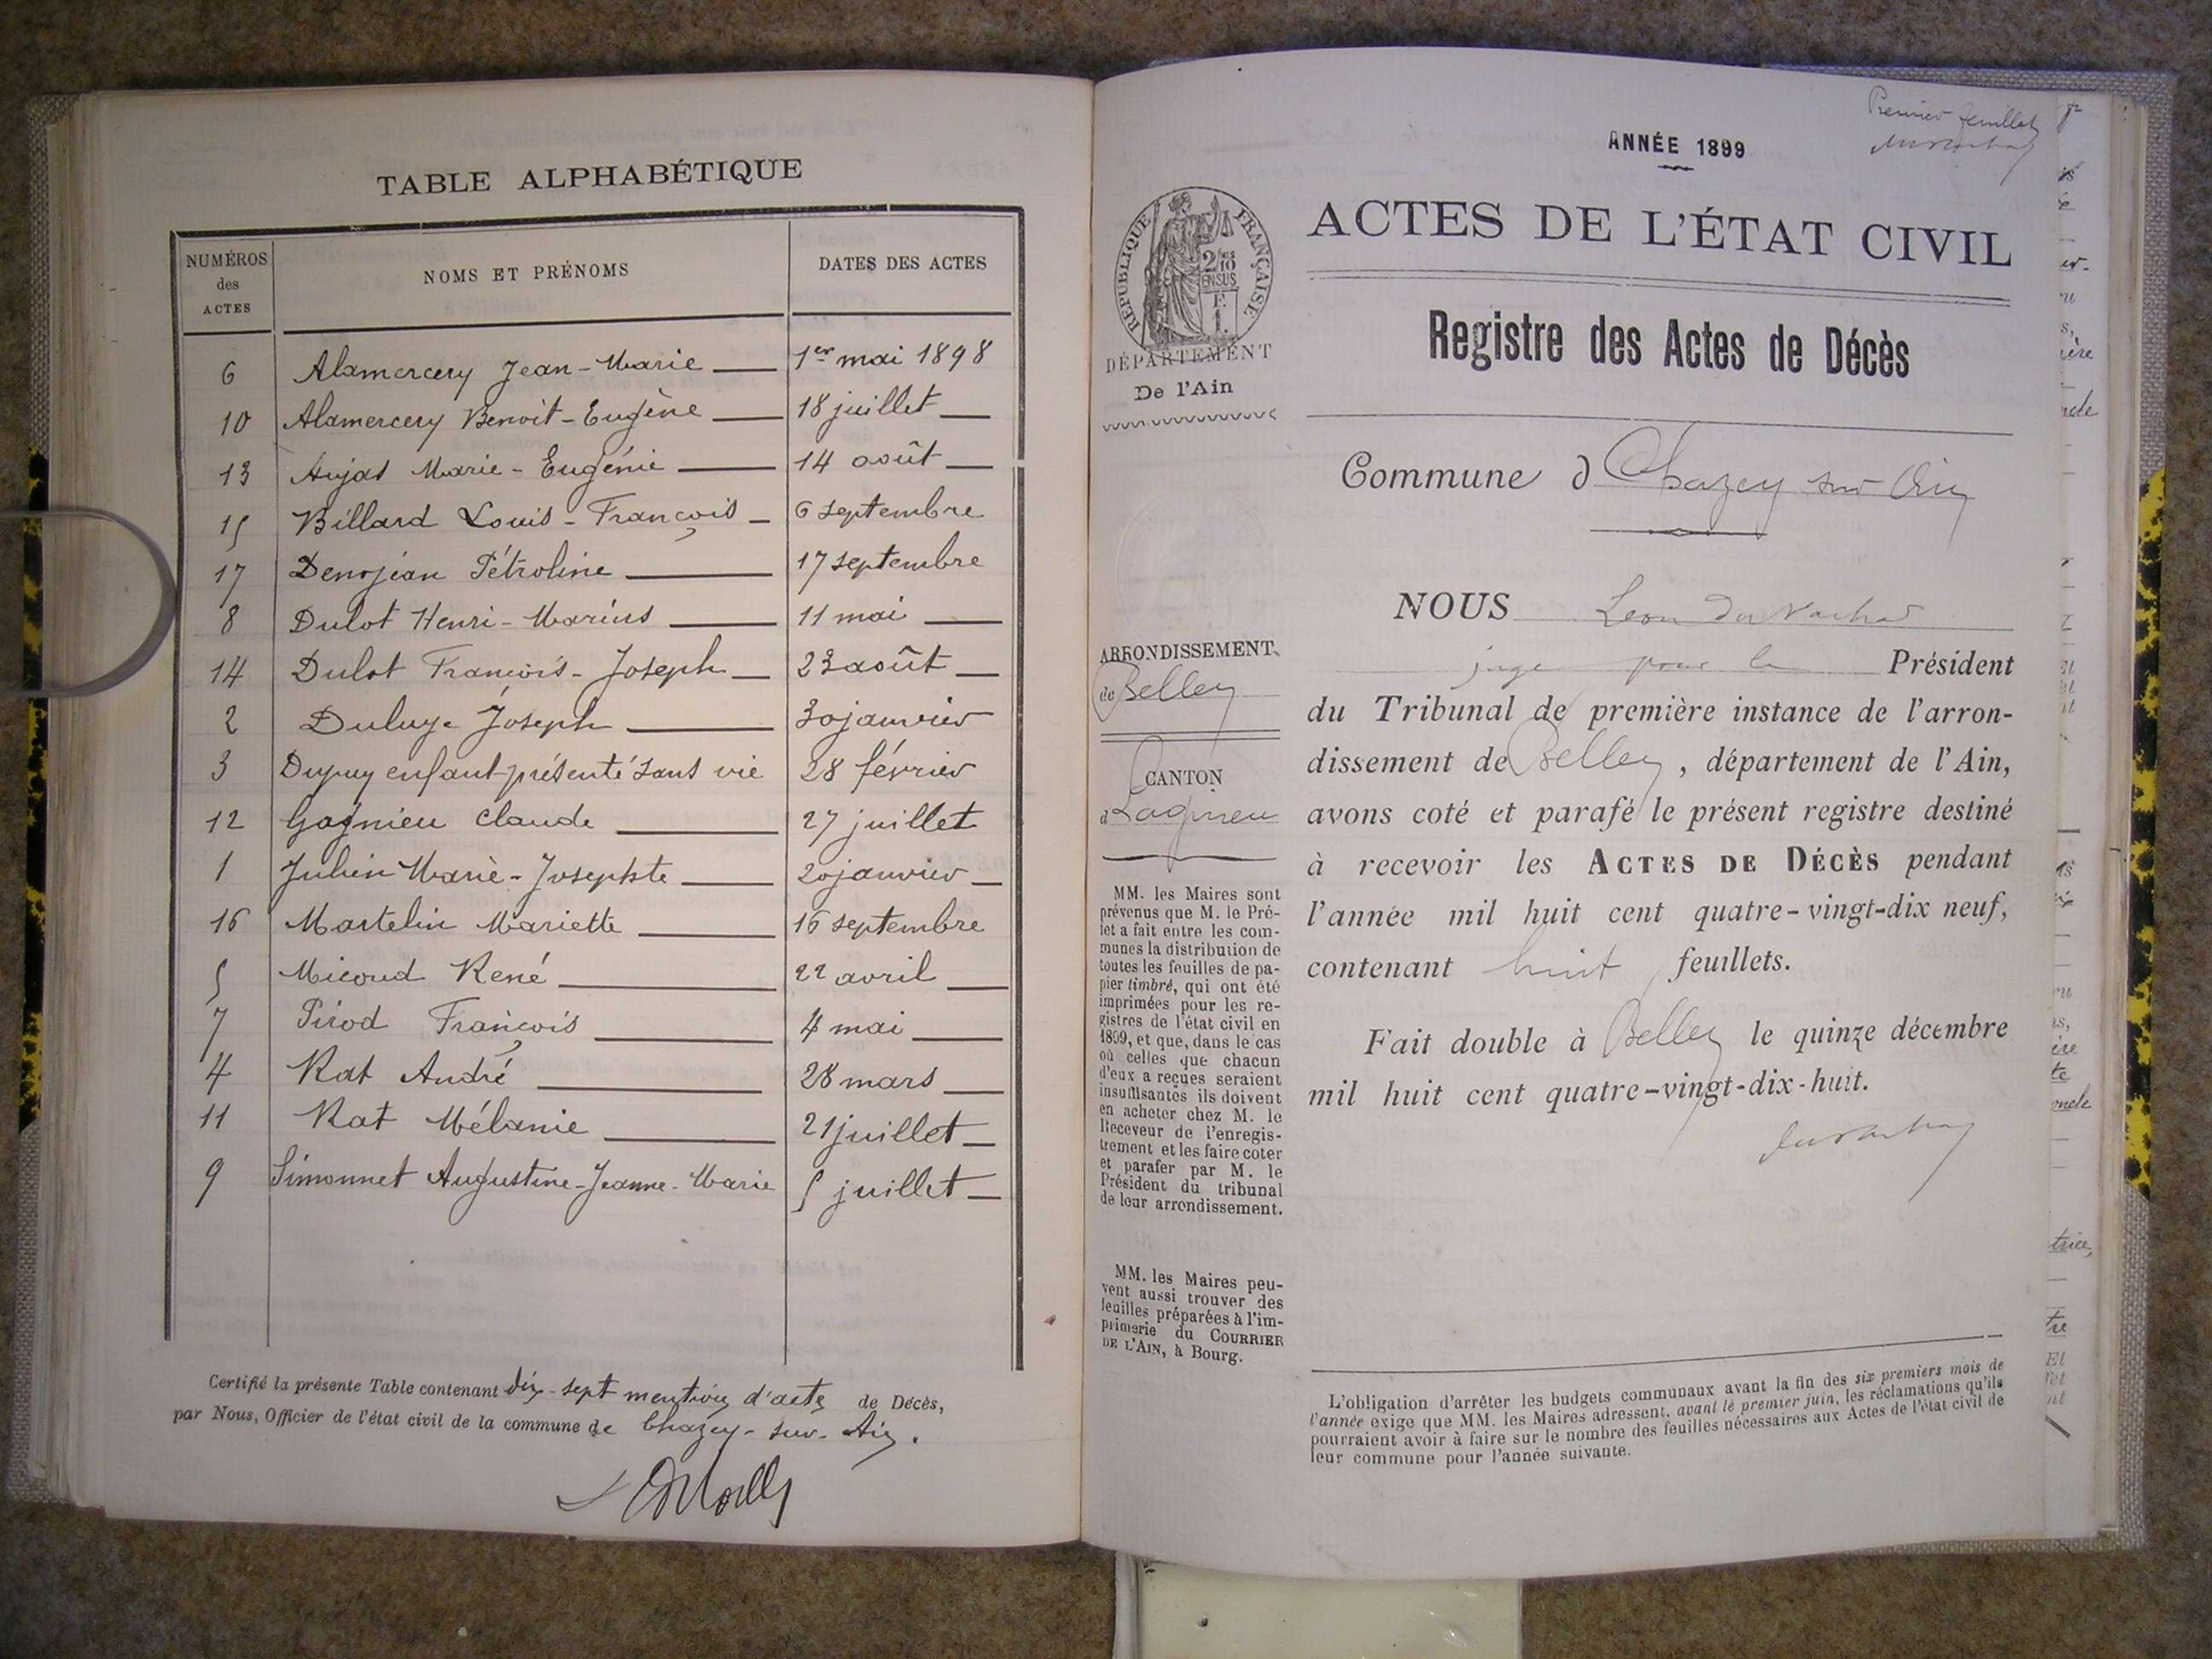 TABLE ALPHABÉTIQUE
NUMÉROS des ACTES
NOMS ET PRÉNOMS
DATES DES ACTES
6 Alamercery Jean-Marie 1er mai 1898
10 Alamercery Benoit-Eugène 18 juillet
13 Aujas Marie-Eugénie 14 août
15 Billard Louis-François 6 septembre
17 Denojean Pétroline 17 septembre
8 Dulot Henri-Marius 11 mai
14 Dulot François-Joseph 23 août
2 Duluye Joseph 30 janvier
3 Dupuy enfant présenté sans vie 28 février
12 Gagnieu Claude 27 juillet
1 Julien Marie-Josephte 20 janvier
16 Martelin Mariette 16 septembre
5 Micoud René 22 avril
7 Pirod François 4 mai
4 Rat André 28 mars
11 Rat Mélanie 21 juillet
9 Simonnet Augustine-Jeanne-Marie 5 juillet
Certifié la présente Table contenant dix-sept mentions d'acte de Décès,
par Nous, Officier de l'état civil de la commune de Chazey-sur-Ain.
Premier feuillet
ANNÉE 1899
RÉPUBLIQUE FRANÇAISE
2/10 EN SUS
F.
1.
DÉPARTEMENT
De l'Ain
ARRONDISSEMENT
de Belley
CANTON
d Lagnieu
MM. les Maires sont
prévenus que M. le Pré-
fet a fait entre les com-
munes la distribution de
toutes les feuilles de pa-
pier timbré, qui ont été
imprimées pour les re-
gistres de l'état civil en
1899, et que, dans le cas
où celles que chacun
d'eux a reçues seraient
insuffisantes ils doivent
en acheter chez M. le
Receveur de l'enregis-
trement et les faire coter
et parafer par M. le
Président du tribunal
de leur arrondissement.
MM. les Maires peu-
vent aussi trouver des
feuilles préparées à l'im-
primerie du COURRIER
DE L'AIN, à Bourg.
ACTES DE L'ÉTAT CIVIL
Registre des Actes de Décès
Commune d Chazey sur Ain
NOUS Leon
juge pour le Président
du Tribunal de première instance de l'arron-
dissement de Belley, département de l'Ain,
avons coté et parafé le présent registre destiné
à recevoir les ACTES DE DÉCÈS pendant
l'année mil huit cent quatre-vingt-dix neuf,
contenant huit feuillets.
Fait double à Belley le quinze décembre
mil huit cent quatre-vingt-dix-huit.
L'obligation d'arrêter les budgets communaux avant la fin des six premiers mois de
l'année exige que MM. les Maires adressent, avant le premier juin, les réclamations qu'ils
pourraient avoir à faire sur le nombre des feuilles nécessaires aux Actes de l'état civil de
leur commune pour l'année suivante.